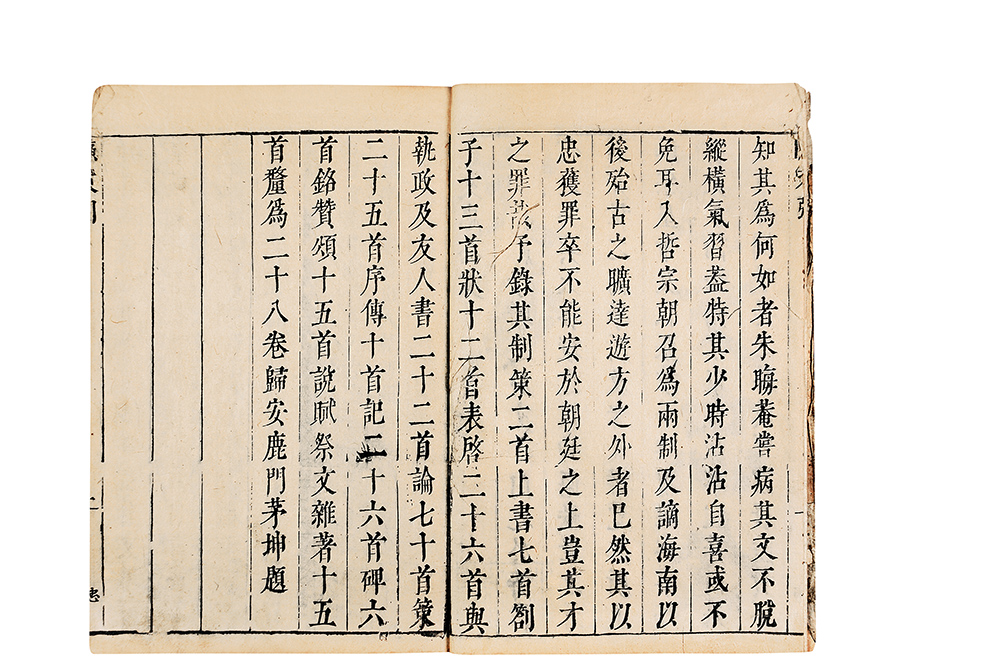 知其為何如者朱晦菴嘗病其文不脫
縱橫氣習蓋特其少時沾沾自喜或不
免耳入哲宗朝召為兩制及謫海南以
後殆古之曠達遊方之外者已然其以
忠獲罪卒不能安於朝廷之上豈其才
之罪哉予錄其制策二首上書七首劄
子十三首狀十二首表啓二十六首與
執政及友人書二十二首論七十首策
二十五首序傳十首記二十六首碑六
首銘贊頌十五首說賦祭文雜著十五
首釐為二十八卷歸安鹿門茅坤題